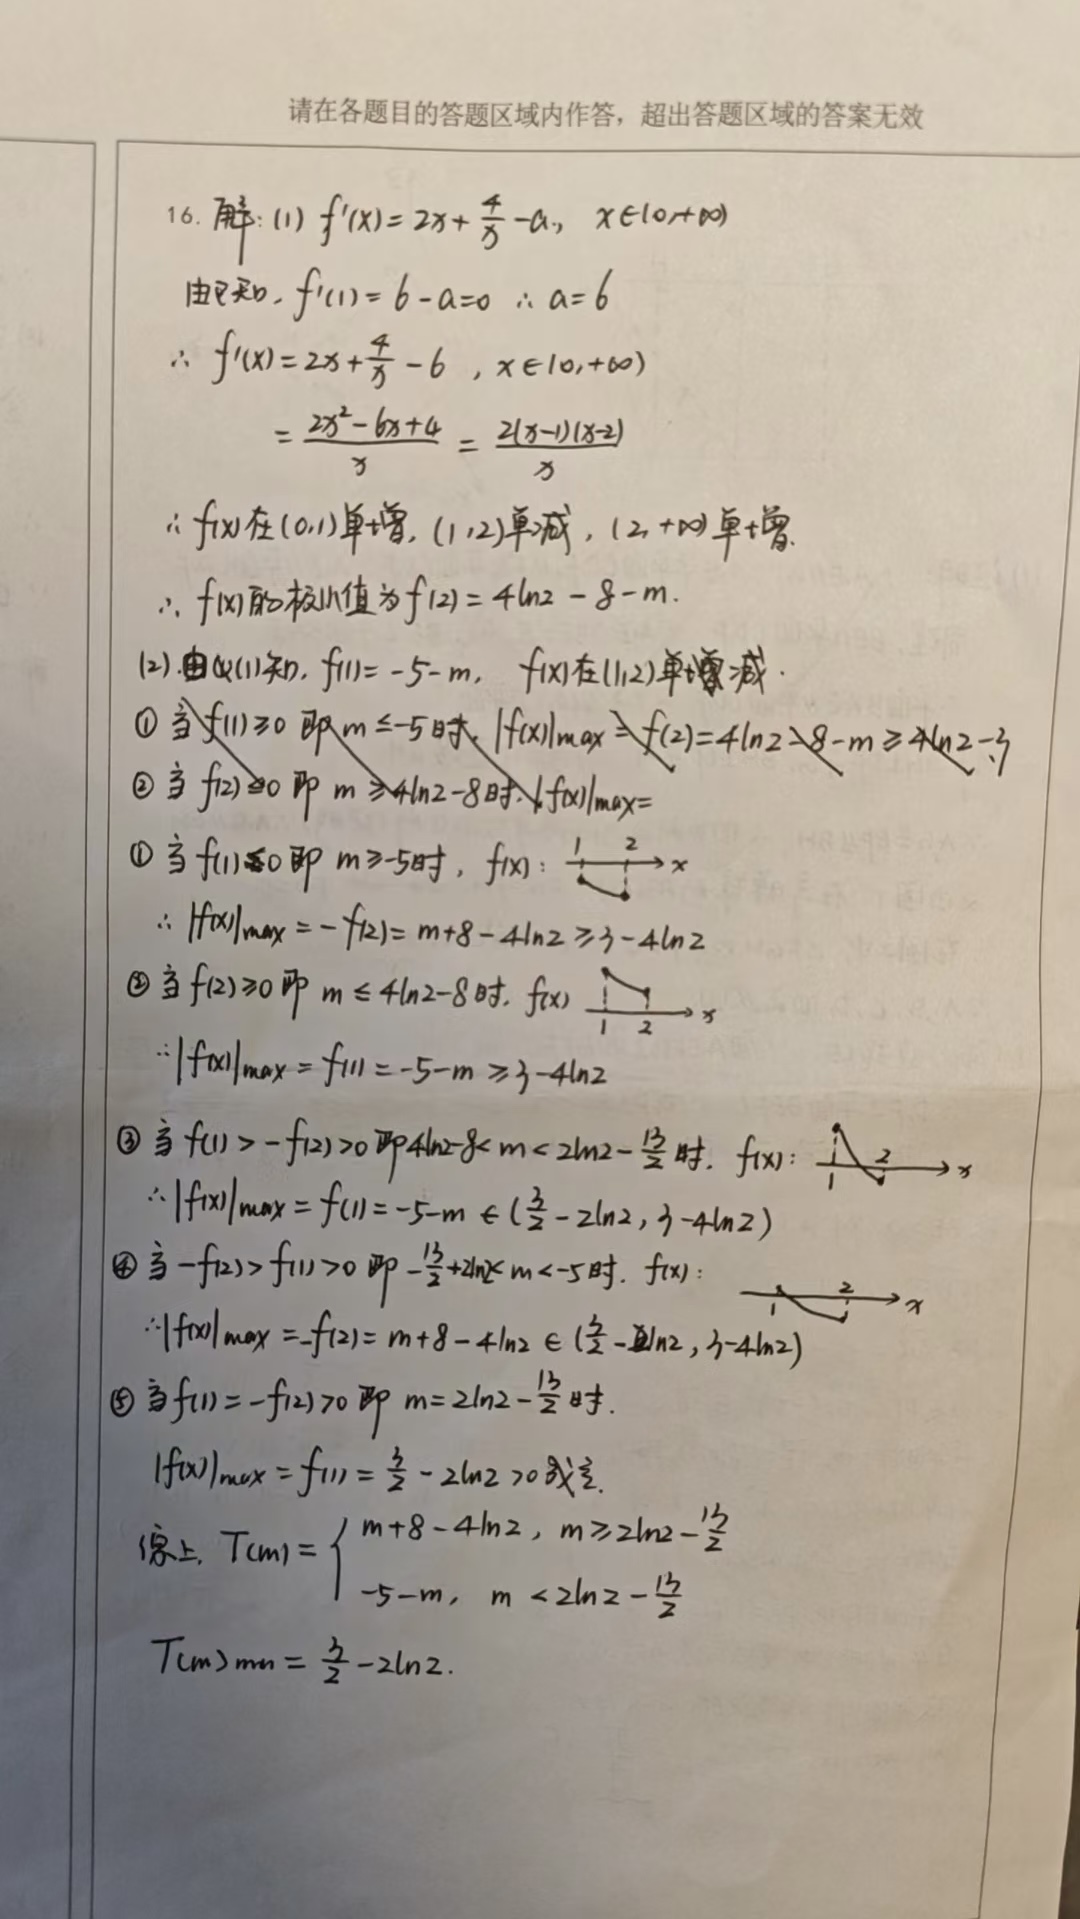 请在各题目的答题区域内作答，超出答题区域的答案无效
16. 解: (1) f'(x) = 2x + 4/x - a, x∈(0,+∞)
由已知, f'(1) = 6 - a = 0 ∴ a = 6
∴ f'(x) = 2x + 4/x - 6 , x∈(0,+∞)
= (2x² - 6x + 4)/x = 2(x-1)(x-2)/x
∴ f(x)在(0,1)单增, (1,2)单减, (2,+∞)单增.
∴ f(x)的极小值为f(2) = 4ln2 - 8 - m.
(2).由(1)知, f(1) = -5 - m, f(x)在(1,2)单减.
① 当 f(1) ≥ 0 即 m ≤ -5时, |f(x)|max = f(2) = 4ln2 - 8 - m ≥ 4ln2 - 3
② 当 f(2) ≤ 0 即 m ≥ 4ln2 - 8时. |f(x)|max =
① 当 f(1) ≤ 0 即 m ≥ -5时, f(x): 1 2 x
∴ |f(x)|max = -f(2) = m + 8 - 4ln2 ≥ 3 - 4ln2
② 当 f(2) ≥ 0 即 m ≤ 4ln2 - 8时. f(x) 1 2 x
∴ |f(x)|max = f(1) = -5 - m ≥ 3 - 4ln2
③ 当 f(1) > -f(2) > 0 即 4ln2 - 8 < m < 2ln2 - 13/2 时. f(x): 1 2 x
∴ |f(x)|max = f(1) = -5 - m ∈ (3/2 - 2ln2, 3 - 4ln2)
④ 当 -f(2) > f(1) > 0 即 -13/2 + 2ln2 < m < -5时. f(x): 1 2 x
∴ |f(x)|max = -f(2) = m + 8 - 4ln2 ∈ (3/2 - 2ln2, 3 - 4ln2)
⑤ 当 f(1) = -f(2) > 0 即 m = 2ln2 - 13/2 时.
|f(x)|max = f(1) = 3/2 - 2ln2 > 0 成立.
综上, T(m) = { m + 8 - 4ln2, m ≥ 2ln2 - 13/2
-5 - m, m < 2ln2 - 13/2
T(m)min = 3/2 - 2ln2.